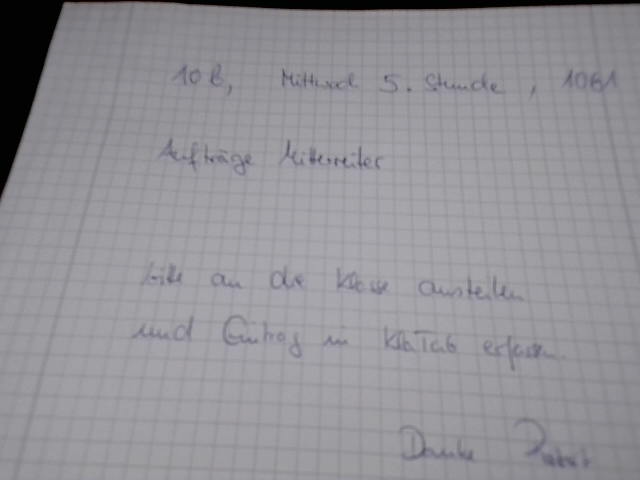 10b, Mittwoch 5. Stunde,
Aufträge Mitterreiter
bitte an die Klasse austeilen
und Eintrag in KlaTab erfassen.
Danke